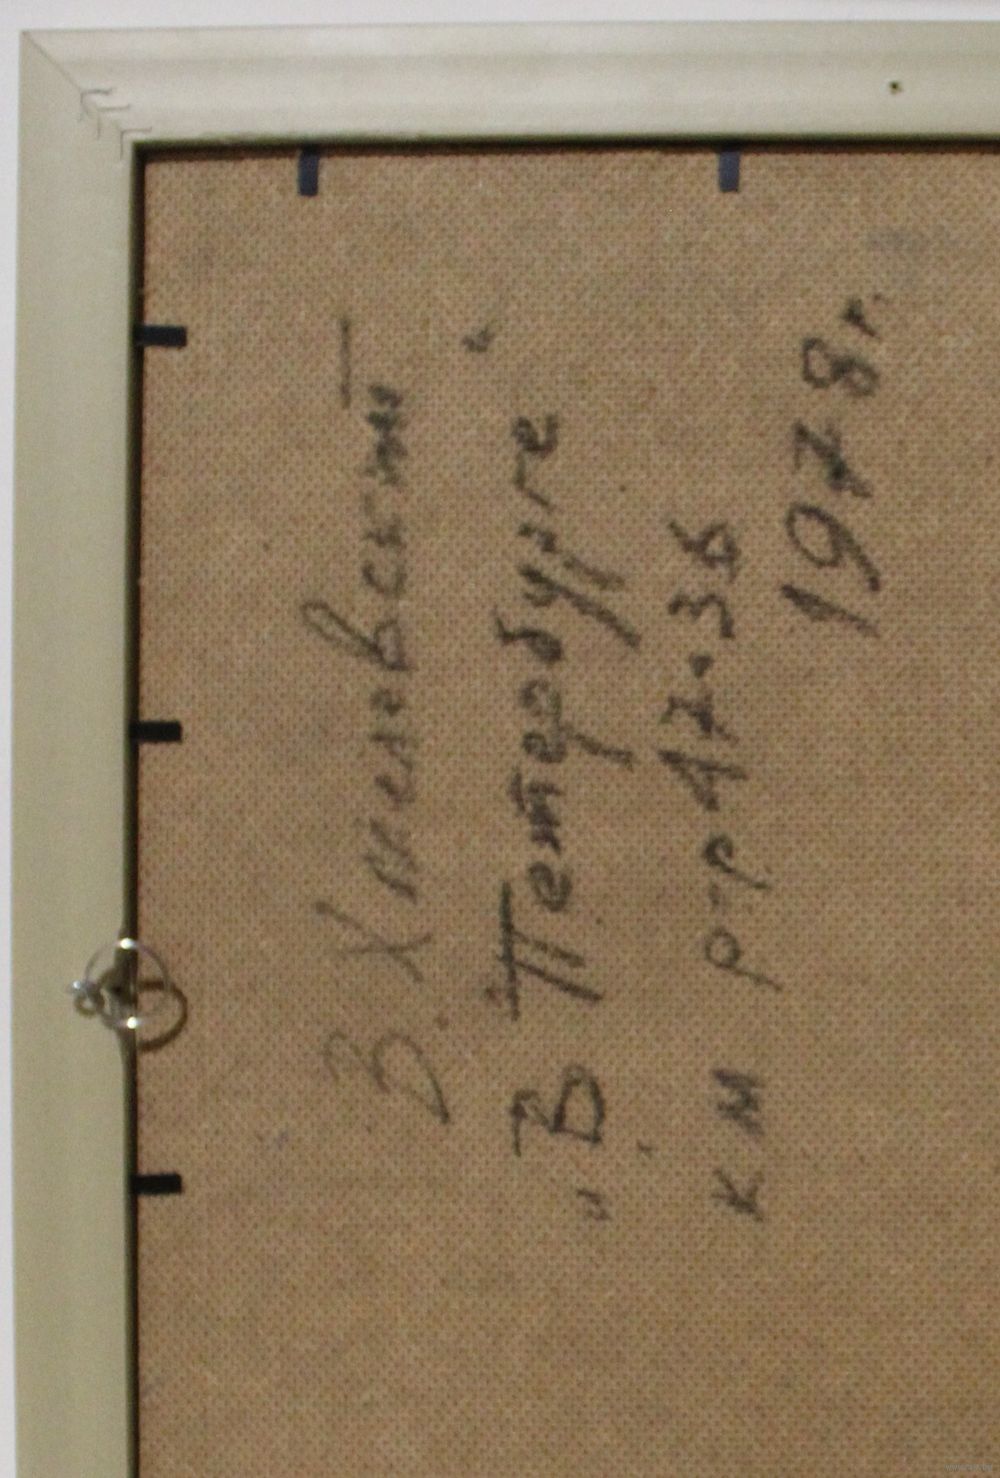 В. Хмелевский
"В Петербурге"
км р-р 47.36
1978 г.